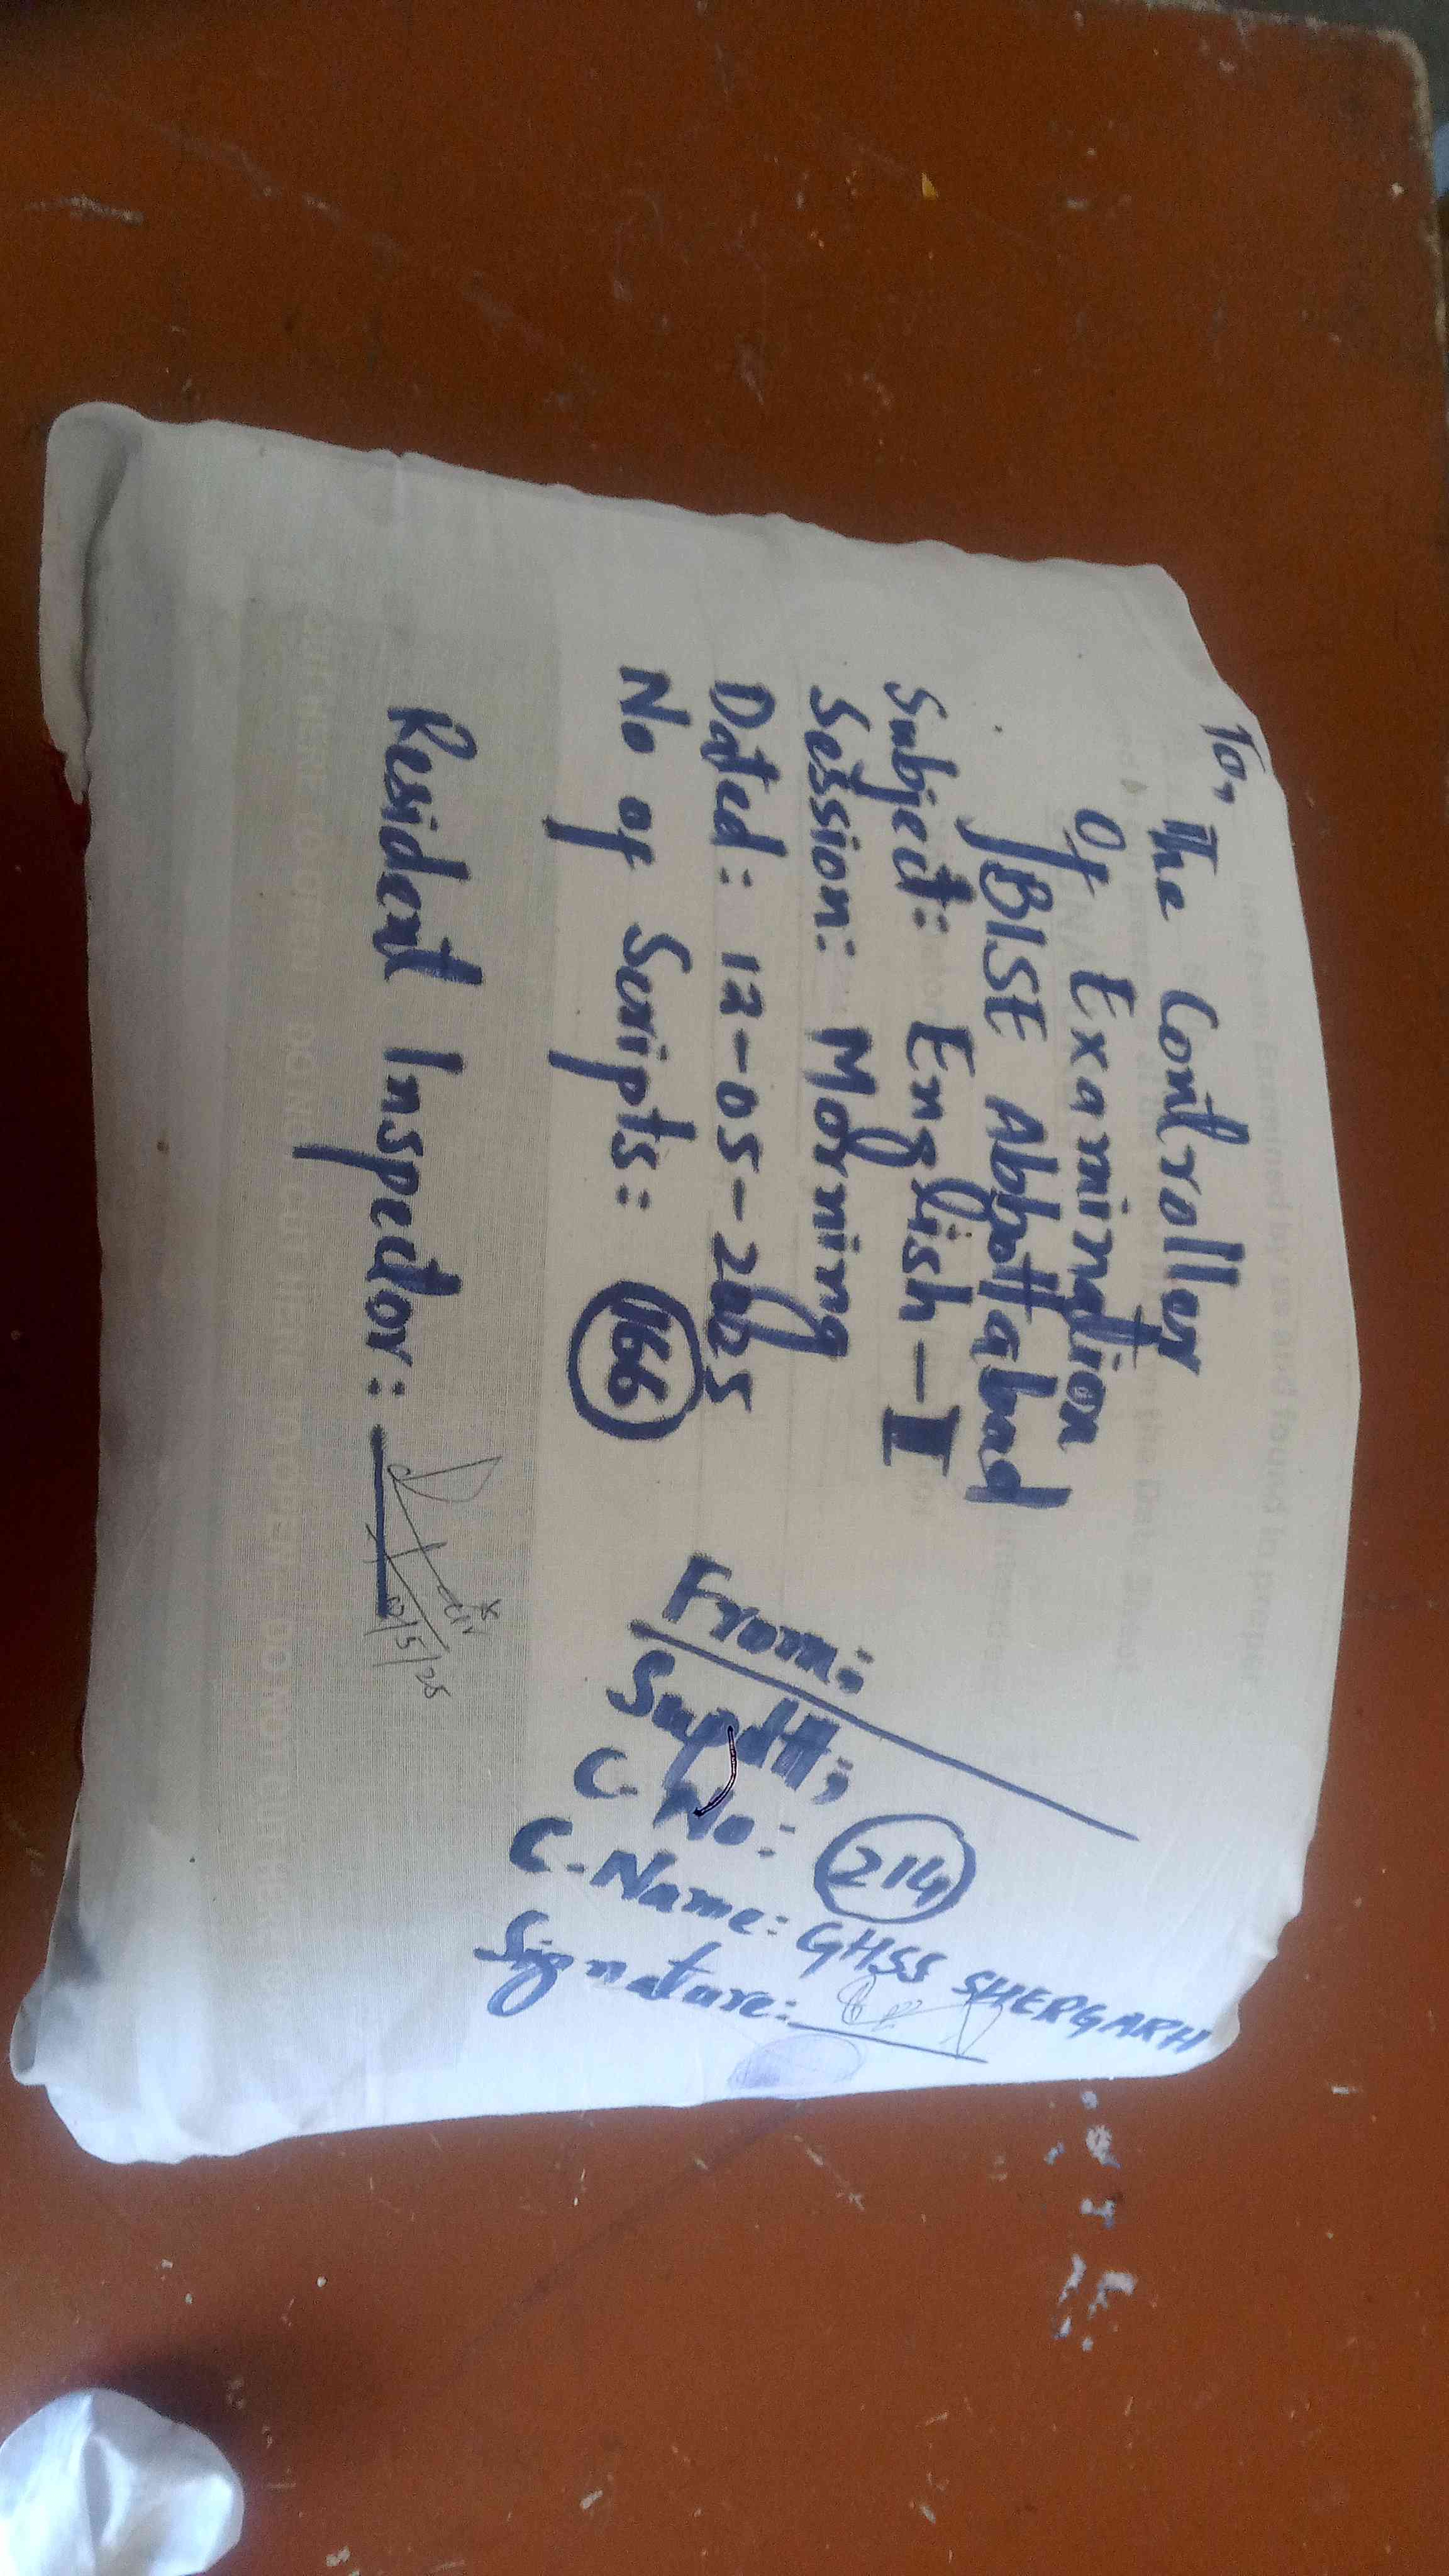 To,
The Controller
Of Examination
BISE Abbottabad
Subject: English-I
Session: Morning
Dated: 12-05-2025
No of Scripts: 166
Resident Inspector:
12/5/25
From:
Supdtt;
C. No: 214
C-Name: GHSS SHERGARH
Signature: